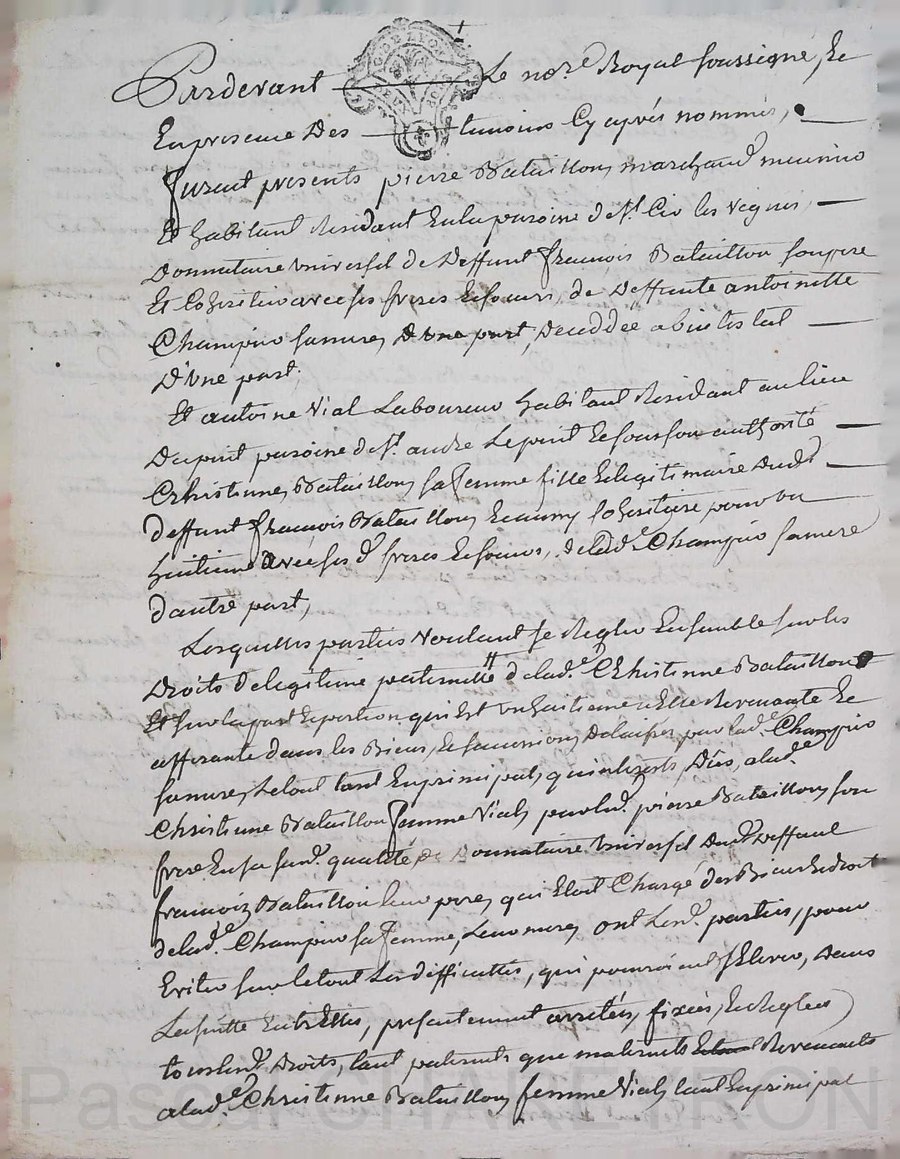 Pardevant Le nore Royal soussigné, Et
En presence Des temoins Cy aprés nommés,
furent presents pierre Bataillon marchand meunier
Et habitant Résidant En la paroisse de St. Cir les vignes,
Donnataire universel de Deffunt François Bataillon son pere
Et Cohéritier avec ses freres Et soeurs, de Deffunte antoinette
Champier sa mere, D'une part, Deceddée abintestat
D'Une part,
Et antoine Vial Laboureur habitant Résidant au lieu
Du puit paroisse de St. andré Le puit Et sous son authorité
Christienne Bataillon sa femme fille Et legitimaire Dudt
deffunt françois Bataillon Et aussy Cohéritiere pour un
huitieme avec ses d. freres Et soeurs, de lade. Champier sa mere
d'autre part,
Lesquelles parties Voulant se Regler Ensemble sur les
Droits de legitime paternelle de lade. Christienne Bataillon
Et sur la part Et portion qui Est un huitieme a Elle Revenante Et
afferante dans les Biens, Et successions Delaissés par lade. Champier
sa mere, Le tout tant En principal, qu'interets Dûs, a lade.
Christienne Bataillon femme Vial, par led. pierre Bataillon son
frere En sa susd. qualité de Donnataire universel dud. Deffunt
francois Bataillon leur pere, qui Etoit Chargé des Biens Et droits
de lade. Champier sa femme, Leur mere, ont Lesd. parties, pour
Eviter sur le tout Les difficultés, qui pourroient s'Elever, Dans
La suitte Entr'Elles, presentement arretés, fixées, Et Reglées
tous lesd. Droits, tant paternels que maternels Revenants
a lade. Christienne Bataillon femme Vial, tant En principal
Pascal CHAREYRON